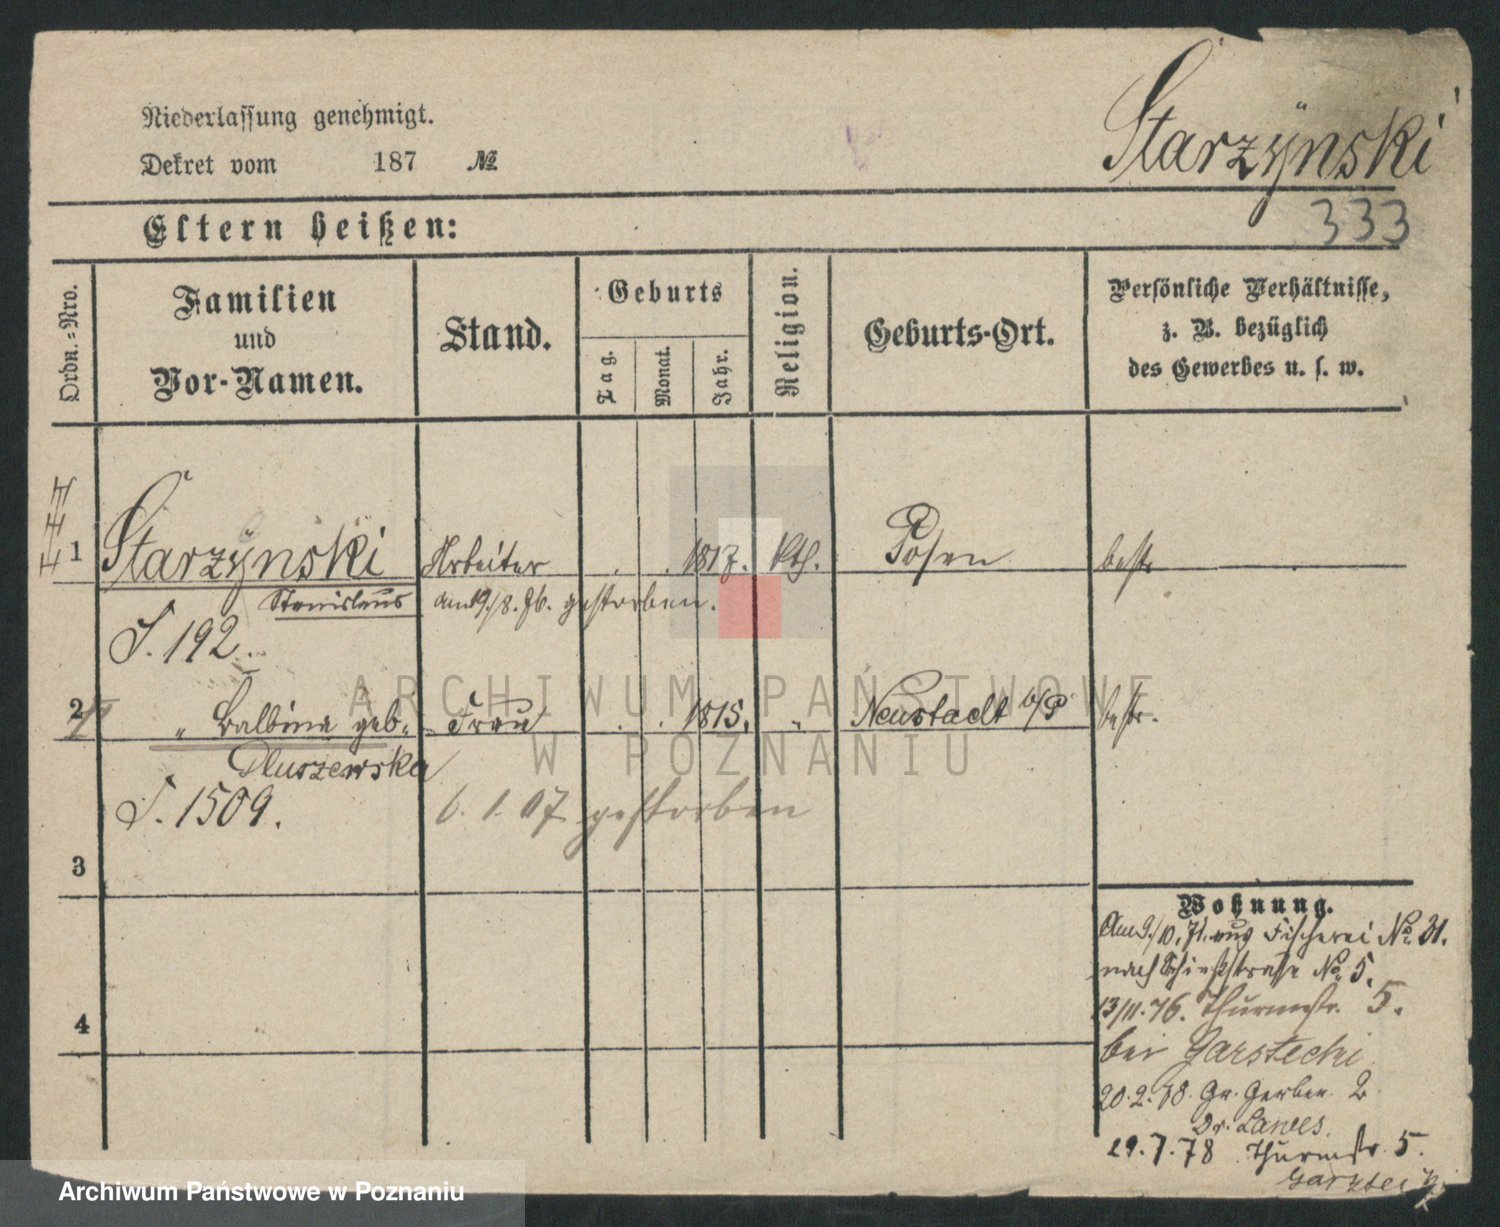 Niederlassung genehmigt.
Dekret vom 187 №
Starzÿnski
333
Eltern heißen:
Ordn.=Nro.
Familien
und
Vor-Namen.
Stand.
Geburts
Tag.
Monat.
Jahr.
Religion.
Geburts-Ort.
Persönliche Verhältnisse,
z. B. bezüglich
des Gewerbes u. s. w.
1 Starzÿnski Arbeiter . . 1817. kth. Posen bestr
Stanislaus am 19./8. 76. gestorben.
S. 192.
2 " Balbina geb. Frau . . 1815. " Neustadt b/P bestr.
Dluszewska
S. 1509. 6. 1. 07 gestorben
3
4
Wohnung.
Am 9./10. 71. aus Fischerei No. 31.
nach Schießstrasse No. 5.
13/11. 76. Thurmstr. 5.
bei Garstecki
20. 2. 78. Gr. Gerber. 2.
29. 7. 78 Thurmstr. 5.
ARCHIWUM PAŃSTWOWE
W POZNANIU
Archiwum Państwowe w Poznaniu